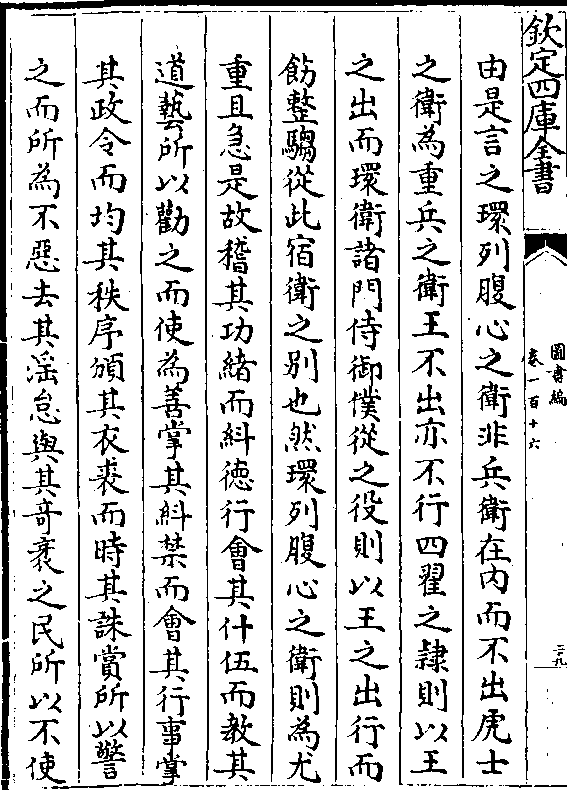 欽定四庫全書
圖書編
卷一百十六
二九
由是言之環列腹心之衛非兵衛在内而不出虎士
之衛為重兵之衛王不出亦不行四翟之隷則以王
之出而環衛諸門侍御僕從之役則以王之出行而
飭整騶從此宿衛之别也然環列腹心之衛則為尤
重且急是故稽其功緒而糾徳行會其什伍而教其
道藝所以勸之而使為善掌其糾禁而會其行事掌
其政令而均其秩序頒其衣裘而時其誅賞所以警
之而所為不惡去其淫怠與其奇衺之民所以不使